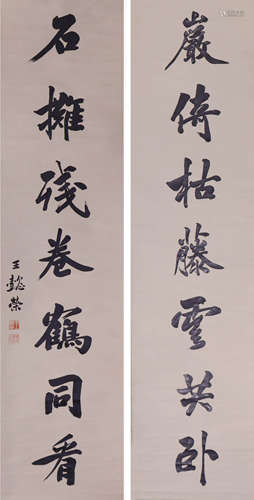 巖倚枯藤雲共卧
石擁殘卷鶴同看
王懿榮